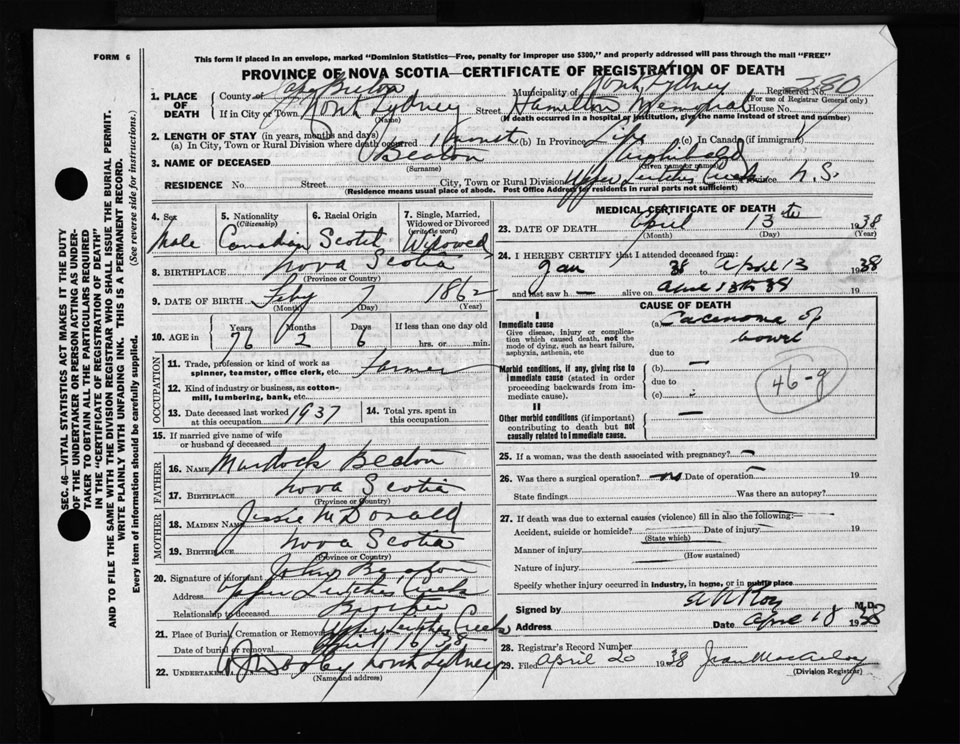 FORM 6
This form if placed in an envelope, marked "Dominion Statistics—Free, penalty for improper use $300," and properly addressed will pass through the mail "FREE"
PROVINCE OF NOVA SCOTIA—CERTIFICATE OF REGISTRATION OF DEATH
1. PLACE OF DEATH
County of Cape Breton Municipality of North Sydney Registered No.
(For use of Registrar General only)
If in City or Town North Sydney Street Hamilton Memorial House No.
(Name) (If death occurred in a hospital or institution, give the name instead of street and number)
2. LENGTH OF STAY (in years, months and days)
(a) In City, Town or Rural Division where death occurred 1 (b) In Province Life (c) In Canada (if immigrant)
3. NAME OF DECEASED Beaton
(Surname) (Given name or names)
RESIDENCE No. Street City, Town or Rural Division Upper Leitches Creek Province N.S.
(Residence means usual place of abode. Post Office Address for residents in rural parts not sufficient)
4. Sex Male
5. Nationality (Citizenship) Canadian
6. Racial Origin Scotch
7. Single, Married, Widowed or Divorced (write the word) Widowed
8. BIRTHPLACE Nova Scotia
(Province or Country)
9. DATE OF BIRTH Feby 7 1862
(Month) (Day) (Year)
10. AGE in Years Months Days If less than one day old
76 2 6 hrs. or min.
OCCUPATION
11. Trade, profession or kind of work as spinner, teamster, office clerk, etc. Farmer
12. Kind of industry or business, as cotton-mill, lumbering, bank, etc.
13. Date deceased last worked at this occupation 1937
14. Total yrs. spent in this occupation
15. If married give name of wife or husband of deceased
FATHER
16. NAME Murdock Beaton
17. BIRTHPLACE Nova Scotia
(Province or Country)
MOTHER
18. MAIDEN NAME Jessie McDonald
19. BIRTHPLACE Nova Scotia
(Province or Country)
20. Signature of informant John Beaton
Address Upper Leitches Creek
Relationship to deceased Brother
21. Place of Burial, Cremation or Removal Upper Leitches Creek
Date of burial or removal April 16 38
22. UNDERTAKER North Sydney
(Name and address)
MEDICAL CERTIFICATE OF DEATH
23. DATE OF DEATH April 13th 1938
(Month) (Day) (Year)
24. I HEREBY CERTIFY that I attended deceased from:
Jan 38 to April 13 1938
and last saw h alive on April 13th 38 19
CAUSE OF DEATH
I
Immediate cause
Give disease, injury or complication which caused death, not the mode of dying, such as heart failure, asphyxia, asthenia, etc
(a) Carcinoma of bowel
due to
Morbid conditions, if any, giving rise to immediate cause (stated in order proceeding backwards from immediate cause).
(b) —
due to
(c) —
46-g
II
Other morbid conditions (if important) contributing to death but not causally related to immediate cause. —
25. If a woman, was the death associated with pregnancy? —
26. Was there a surgical operation? no Date of operation 19
State findings Was there an autopsy?
27. If death was due to external causes (violence) fill in also the following:
Accident, suicide or homicide? Date of injury 19
(State which)
Manner of injury
(How sustained)
Nature of injury
Specify whether injury occurred in industry, in home, or in public place
Signed by M.D.
Address Date April 18 1938
28. Registrar's Record Number
29. Filed April 20 1938
(Division Registrar)
SEC. 46—VITAL STATISTICS ACT MAKES IT THE DUTY
OF THE UNDERTAKER OR PERSON ACTING AS UNDER-
TAKER TO OBTAIN ALL THE PARTICULARS REQUIRED
IN THE "CERTIFICATE OF REGISTRATION OF DEATH"
AND TO FILE THE SAME WITH THE DIVISION REGISTRAR WHO SHALL ISSUE THE BURIAL PERMIT.
WRITE PLAINLY WITH UNFADING INK. THIS IS A PERMANENT RECORD.
Every item of information should be carefully supplied. (See reverse side for instructions.)